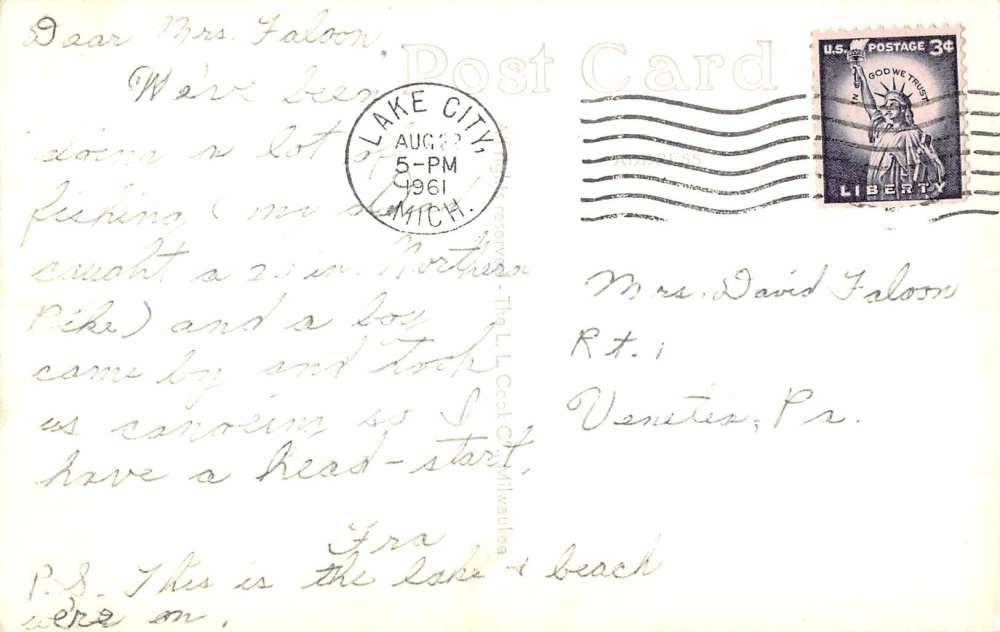 Dear Mrs. Faloon
We've been
doing a lot of
fishing, (my dad
caught a 20 in. Northern
Pike) and a boy
came by and took
us canoeing so I
have a head-start.
Fra
P.S. This is the lake & beach
we're on.
Post Card
ADDRESS
LAKE CITY,
AUG 22
5-PM
1961
MICH.
U.S. POSTAGE 3¢
IN GOD WE TRUST
LIBERTY
Mrs. David Faloon
Rt. 1
Venetia, Pa.
rights reserved - The L. L. Cook Co., Milwaukee